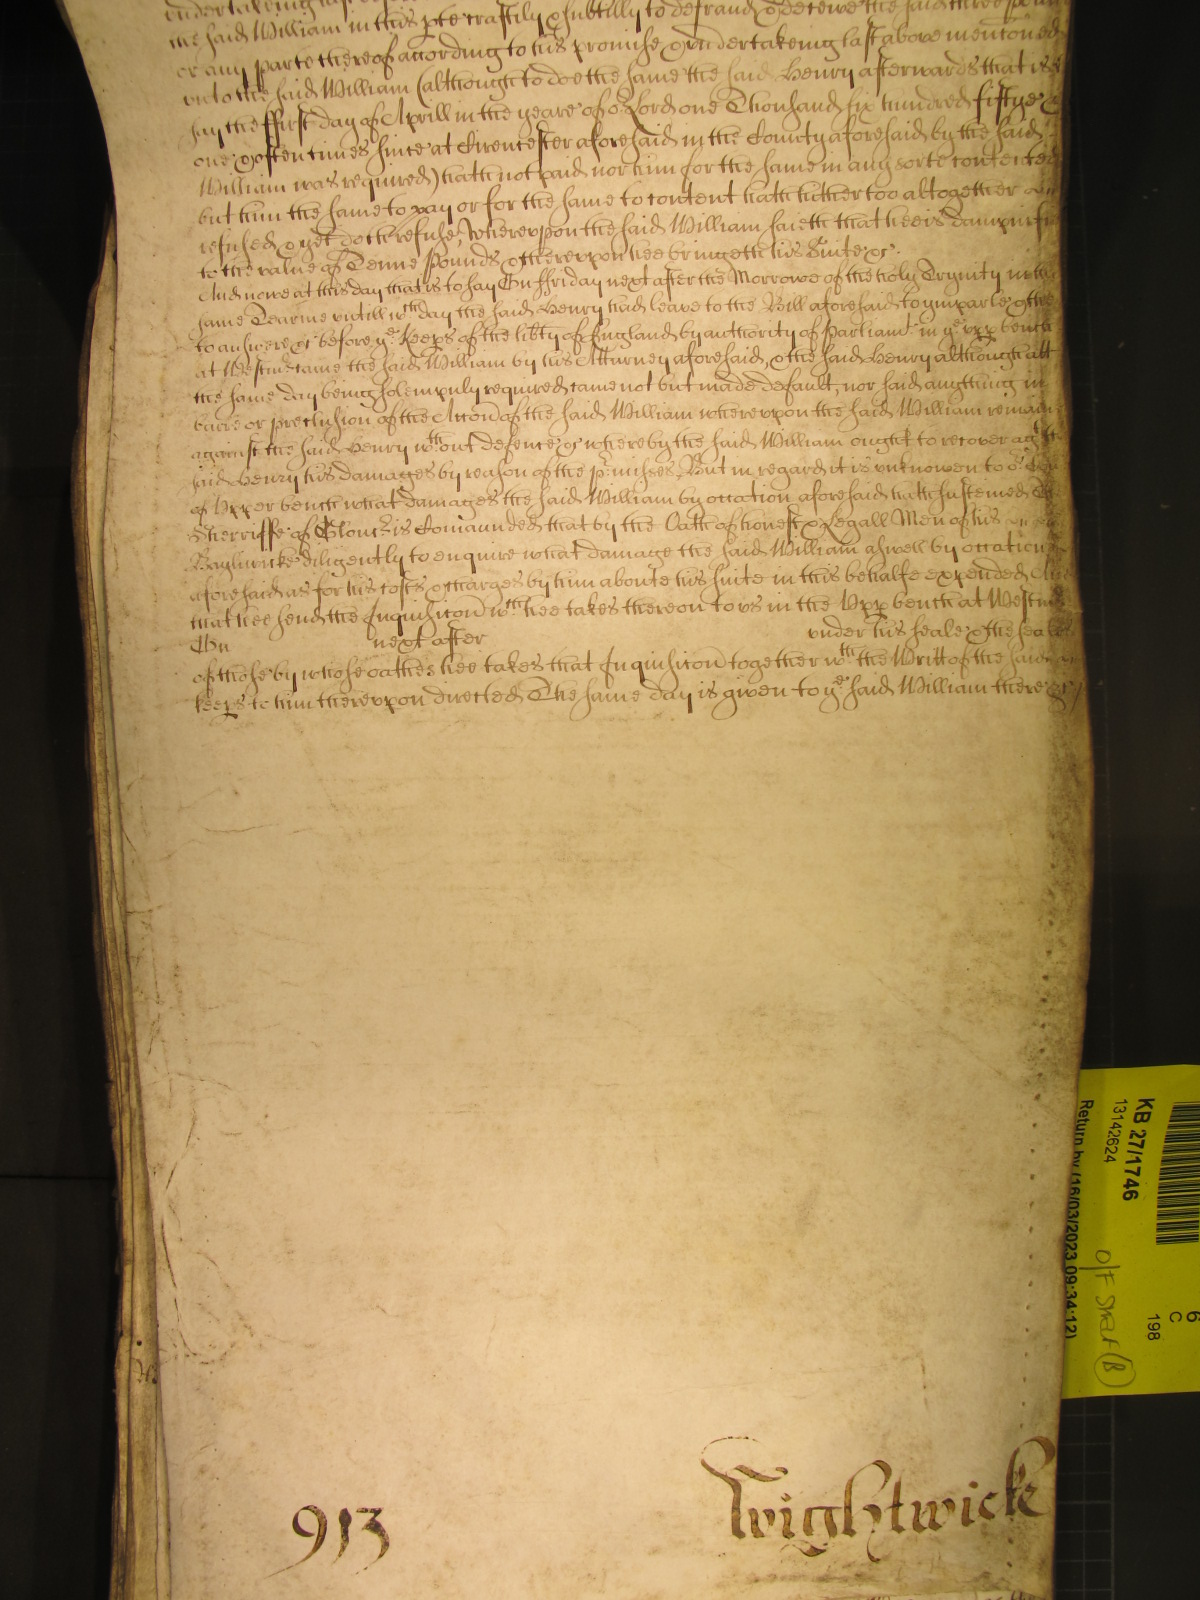 undertakeing last
the said William in this pte craftily & subtilly to defraud & deceive the said three
or any parte thereof according to his promise & undertakeing last above mentioned
vnto the said William (although to doe the same the said Henry afterwards that is
say the ffirst day of Aprill in the yeare of or Lord one Thousand six hundred fiftye &
one & often times since at Cirencester aforesaid in the County aforesaid by the said
William was required) hath not paid nor him for the same in any sorte contented
but him the same to pay or for the same to content hath hitherto altogether
refused & yet doth refuse, Wherevpon the said William saieth that hee is dampnified
to the value of Tenne pounds & therevpon hee bringeth his Suite &c.
And nowe at this day that is to say On ffriday next after the Morrowe of the holy Trynity in the
same Tearme vntill wch day the said Henry had leave to the Bill aforesaid to ymparle & then
to answere &c before ye Keeps of the libty of England by authority of Parliamt in ye vpp bench
at Westmr came the said William by his Attorney aforesaid, & the said Henry although att
the same day being solempnly required came not but made default, nor said anything in
barre or preclusion of the Accon of the said William wherevpon the said William remaines
against the said Henry wthout defence &c whereby the said William ought to recover agt the
said Henry his damages by reason of the pmisses, But in regard it is vnknowen to or Court
of Vpper bench what damages the said William by occation aforesaid hath susteined The
Sherriffe of Gloucr is Comaunded that by the Oath of honest & Legall Men of his
Bayliwicke diligently to enquire what damage the said William aswell by occation
aforesaid as for his costs & charges by him aboute his suite in this behalfe expended And
that hee send the Inquisicon wch hee takes thereon to vs in the Vpp bench at Westmr
On next after vnder his seale & the seales
of those by whose oathes hee takes that Inquisicon together wth the Writt of the said
keeps to him therevpon directed The same day is given to ye said William there &c
913 Wightwicke
KB 27/1746
13142624
Return by (16/03/2023 09:34:12)
6
C
198
O/F Shelf (B)